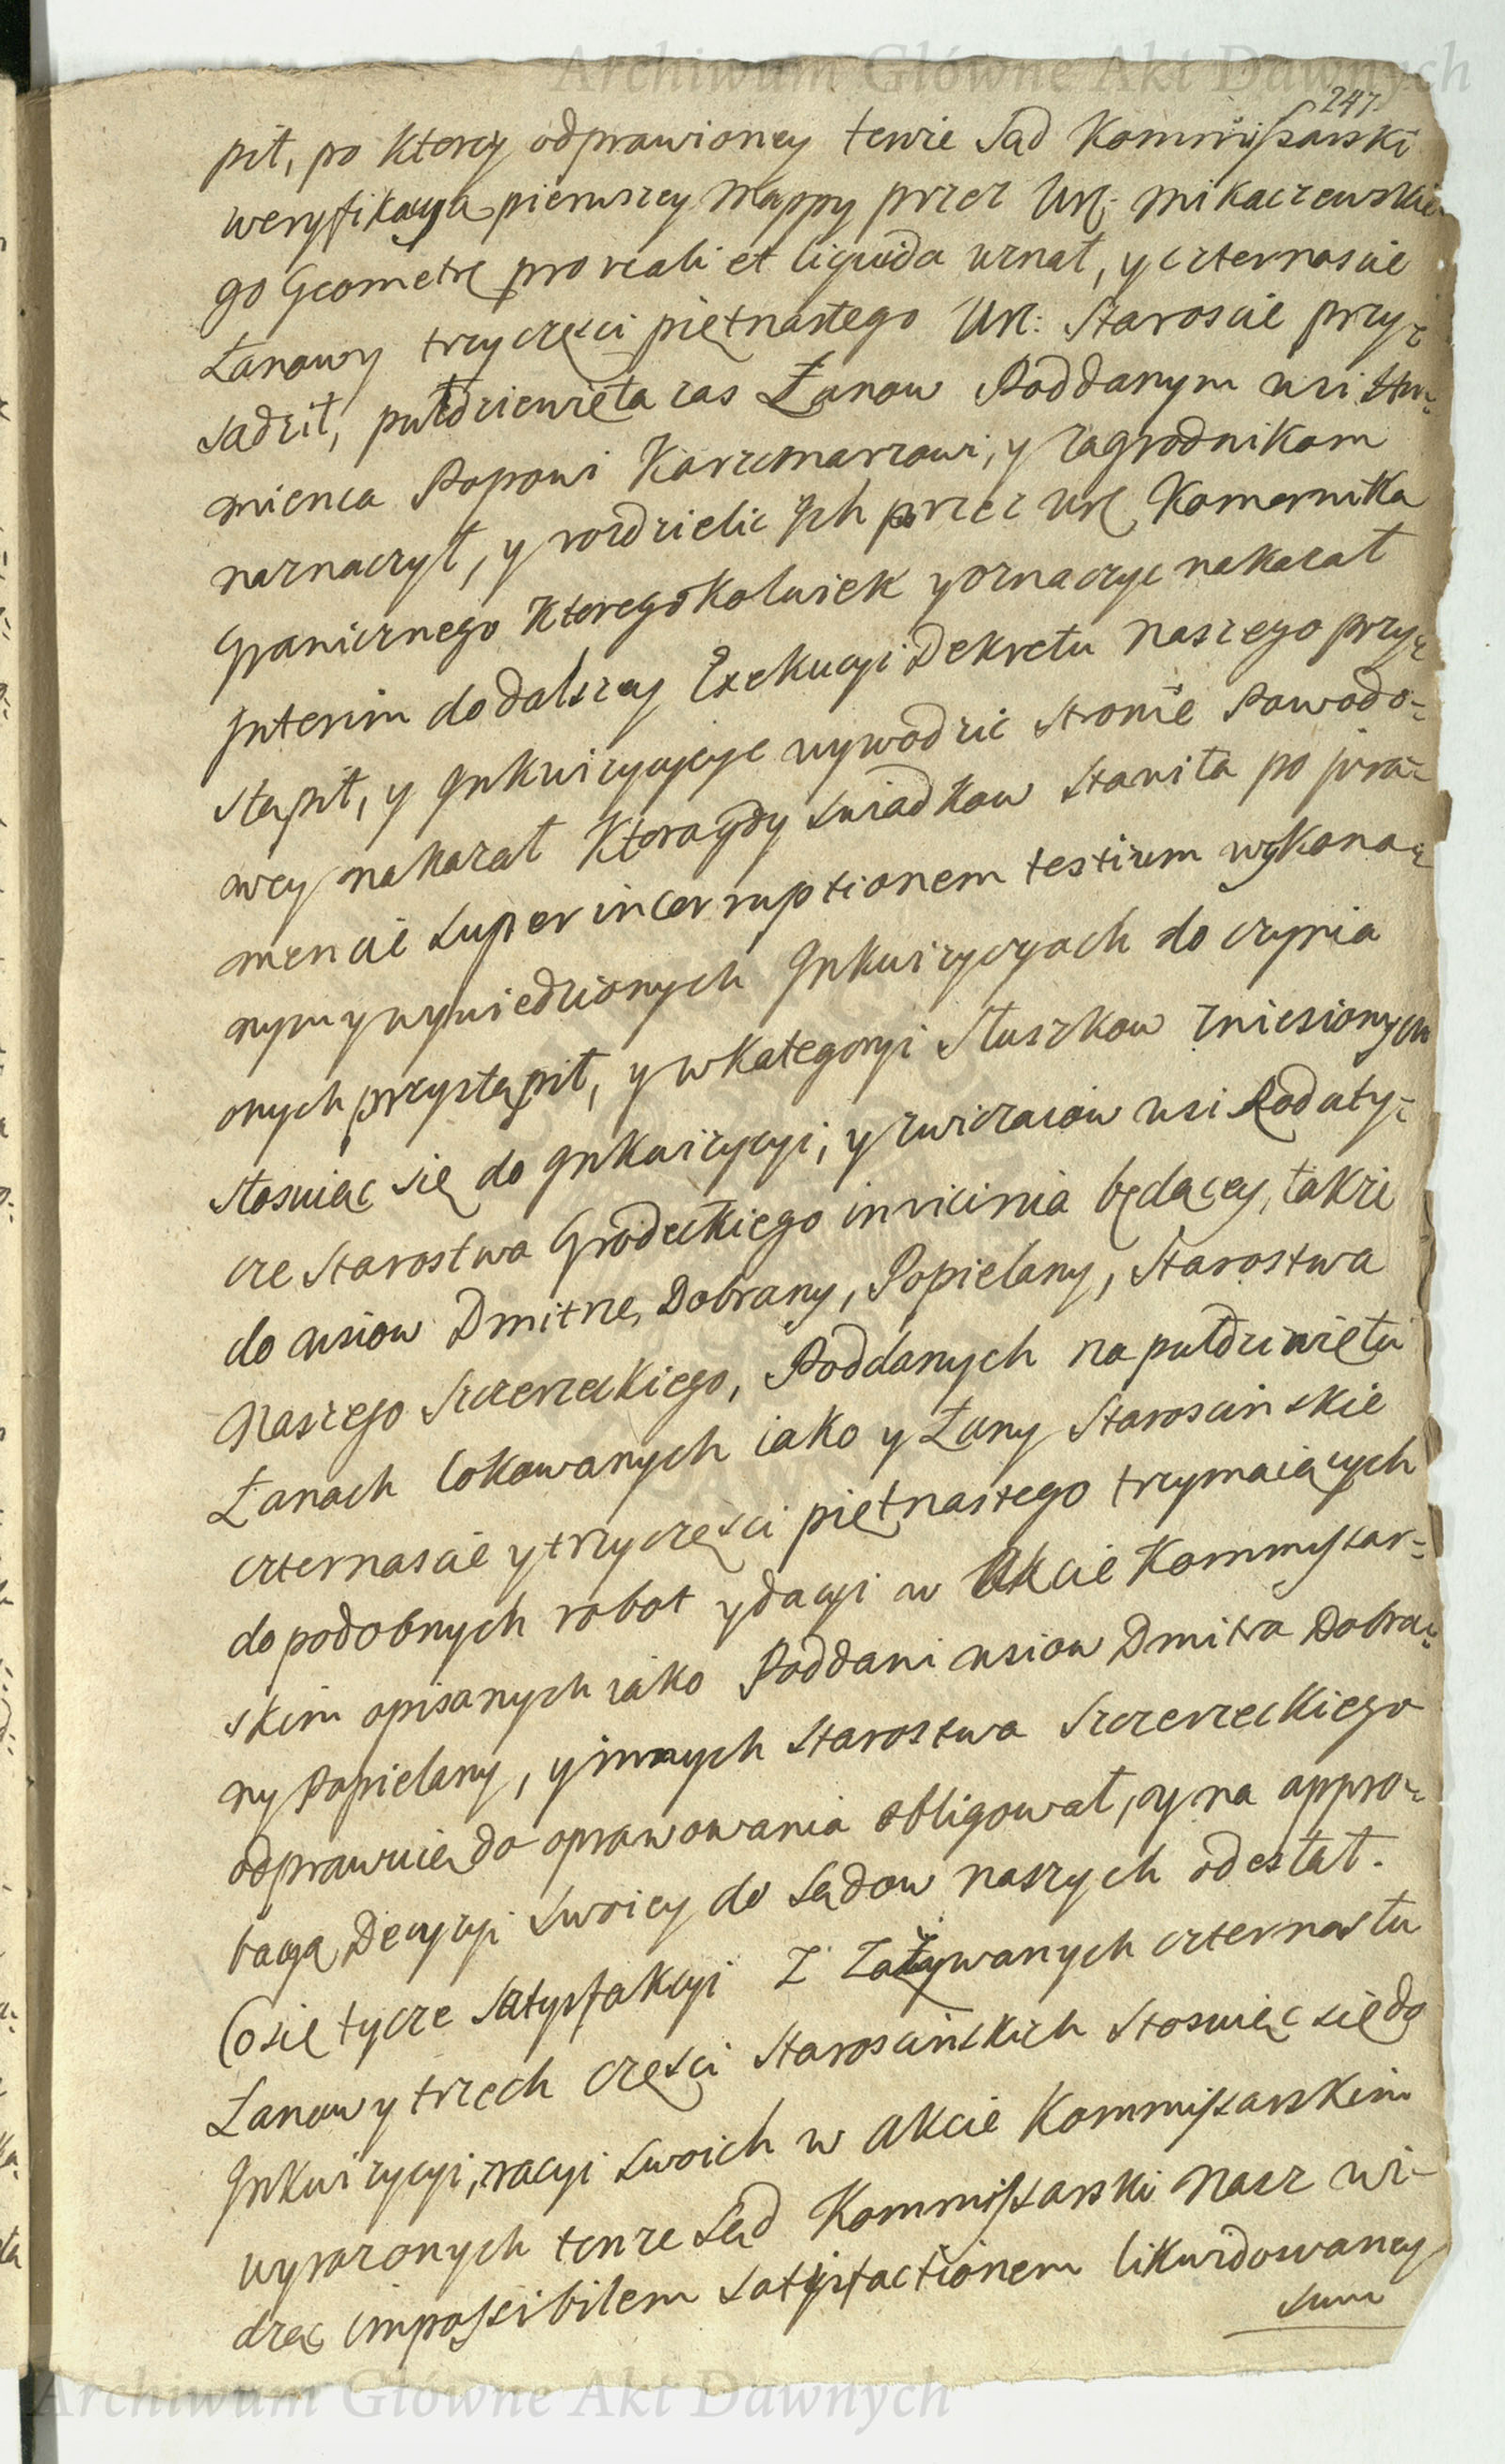 Archiwum Główne Akt Dawnych
247.
pił, po ktorey odprawioney tenze Sąd Kommissarski
weryfikacyą pierwszey Mappy przez Ur: Mikaczewskie
go Geometrę pro reali et liquida uznał, y czternascie
Łanow y trzy części piętnastego Ur: Staroscie przy=
sądził, pułdziewięta zas Łanow Poddanym wsi Hu=
mienca Popowi Karczmarzowi, y zagrodnikom
naznaczył, y rozdzielic Ych przez Ur Komornika
Granicznego ktoregokolwiek y oznaczyc nakazał
Interim do dalszey Exekucyi Dekretu Naszego przy=
stąpił, y Inkwizycye wywodzic Stronie Powodo=
wey nakazał Ktora gdy swiadkow stawiła po jura=
mencie super incorruptionem testium wykona=
nym y wywiedzionych Inkwizycyach do czynia
onych przystąpił, y w kategoryi Stuszkow zniesionych
stosuiąc się do Inkwizycyi, y zwiczaiow wsi Rodaty=
cze Starostwa Grodeckiego in vicinia będącey, takze
do wsiow Dmitrze, Dobrany, Popielany, Starostwa
Naszego Szczerzeckiego, Poddanych na pułdziewiętu
Łanach lokowanych iako y Łany Staroscinskie
czternascie y trzy części piętnastego trzymaiących
do podobnych robot y dacyi w Akcie Kommyssar=
skim opisanych iako Poddani wsiow Dmitra Dobra=
ny Popielany, y innych Starostwa Szczerzeckiego
odprawuią do oprawowania obligował, y na appro=
bacyą Decyzyi swoiey do Sądow naszych odesłał.
Co się tycze Satysfakcyi z Zażywanych czternastu
Łanow y trzech części Staroscinskich Stosuiąc się do
Inkwizycyi, racyi swoich w Akcie Kommissarskim
wyrazonych tenze Sąd Kommissarski Nasz wi=
dząc impossibilem satisfactionem likwidowaney
summ
Archiwum Główne Akt Dawnych